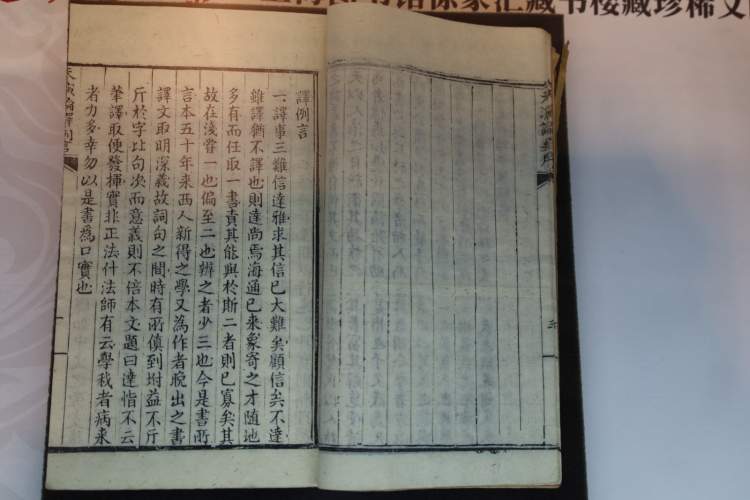 上海图书馆徐家汇藏书楼藏珍稀文
譯例言
一譯事三難信達雅求其信已大難矣顧信矣不達
雖譯猶不譯也則達尚焉海通已來象寄之才隨地
多有而任取一書責其能與於斯二者則已寡矣其
故在淺嘗一也偏至二也辨之者少三也今是書所
言本五十年來西人新得之學又為作者晚出之書
譯文取明深義故詞句之間時有所傎到坿益不斤
斤於字比句次而意義則不倍本文題曰達恉不云
筆譯取便發揮實非正法什法師有云學我者病來
者方多幸勿以是書為口實也
天演論譯例言
一